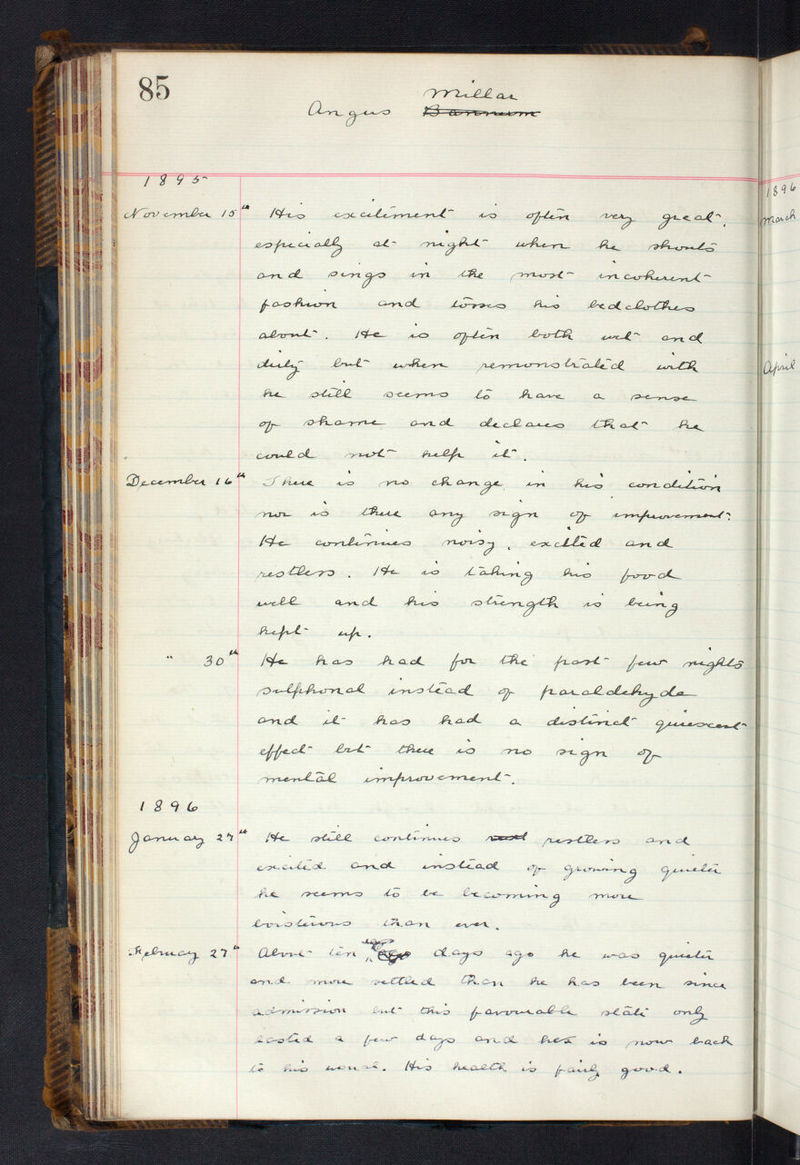 85
Angus Millar
1895
November 15th His excitement is often very great,
especially at night when he shouts
and sings in the most incoherent
fashion and tosses his bedclothes
about. He is often both wet and
dirty but when remonstrated with
he still seems to have a sense
of shame and declares that he
could not help it.
December 16th There is no change in his condition
nor is there any sign of improvement.
He continues noisy, excited and
restless. He is taking his food
well and his strength is being
kept up.
" 30th He has had for the past few nights
sulphonal instead of paraldehyde
and it has had a distinct quiescent
effect but there is no sign of
mental improvement.
1896
January 27th He still continues restless and
excited and instead of growing quieter
he seems to be becoming more
boisterous than ever.
February 27th About ten days ago he was quieter
and more settled than he has been since
admission but this favourable state only
lasted a few days and he is now back
to his usual. His health is fairly good.
1896
March
April